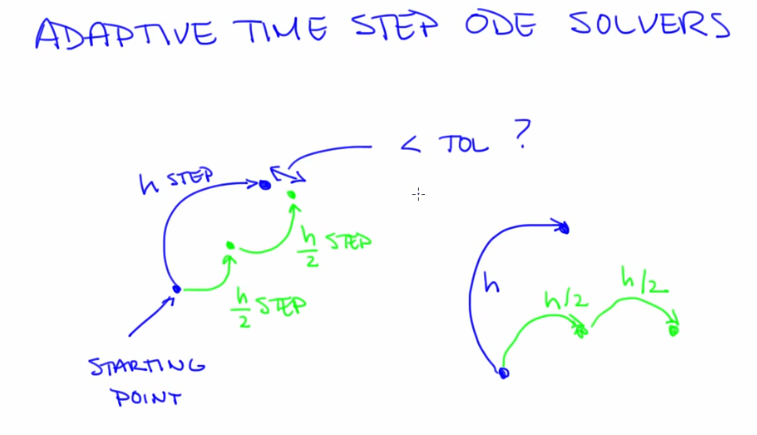 ADAPTIVE TIME STEP ODE SOLVERS
< TOL ?
h STEP
h/2 STEP
h/2 STEP
STARTING
POINT
h
h/2
h/2